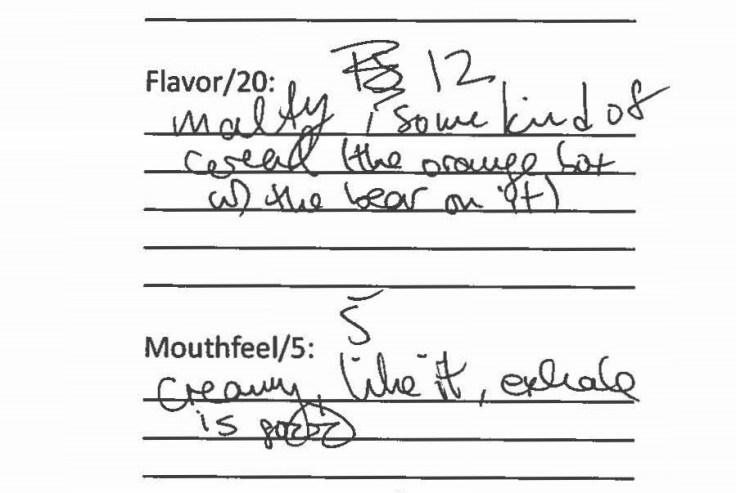 Flavor/20: 12
malty, some kind of
cereal (the orange box
w/ the bear on it)
Mouthfeel/5: 5
creamy, like it, exhale
is good